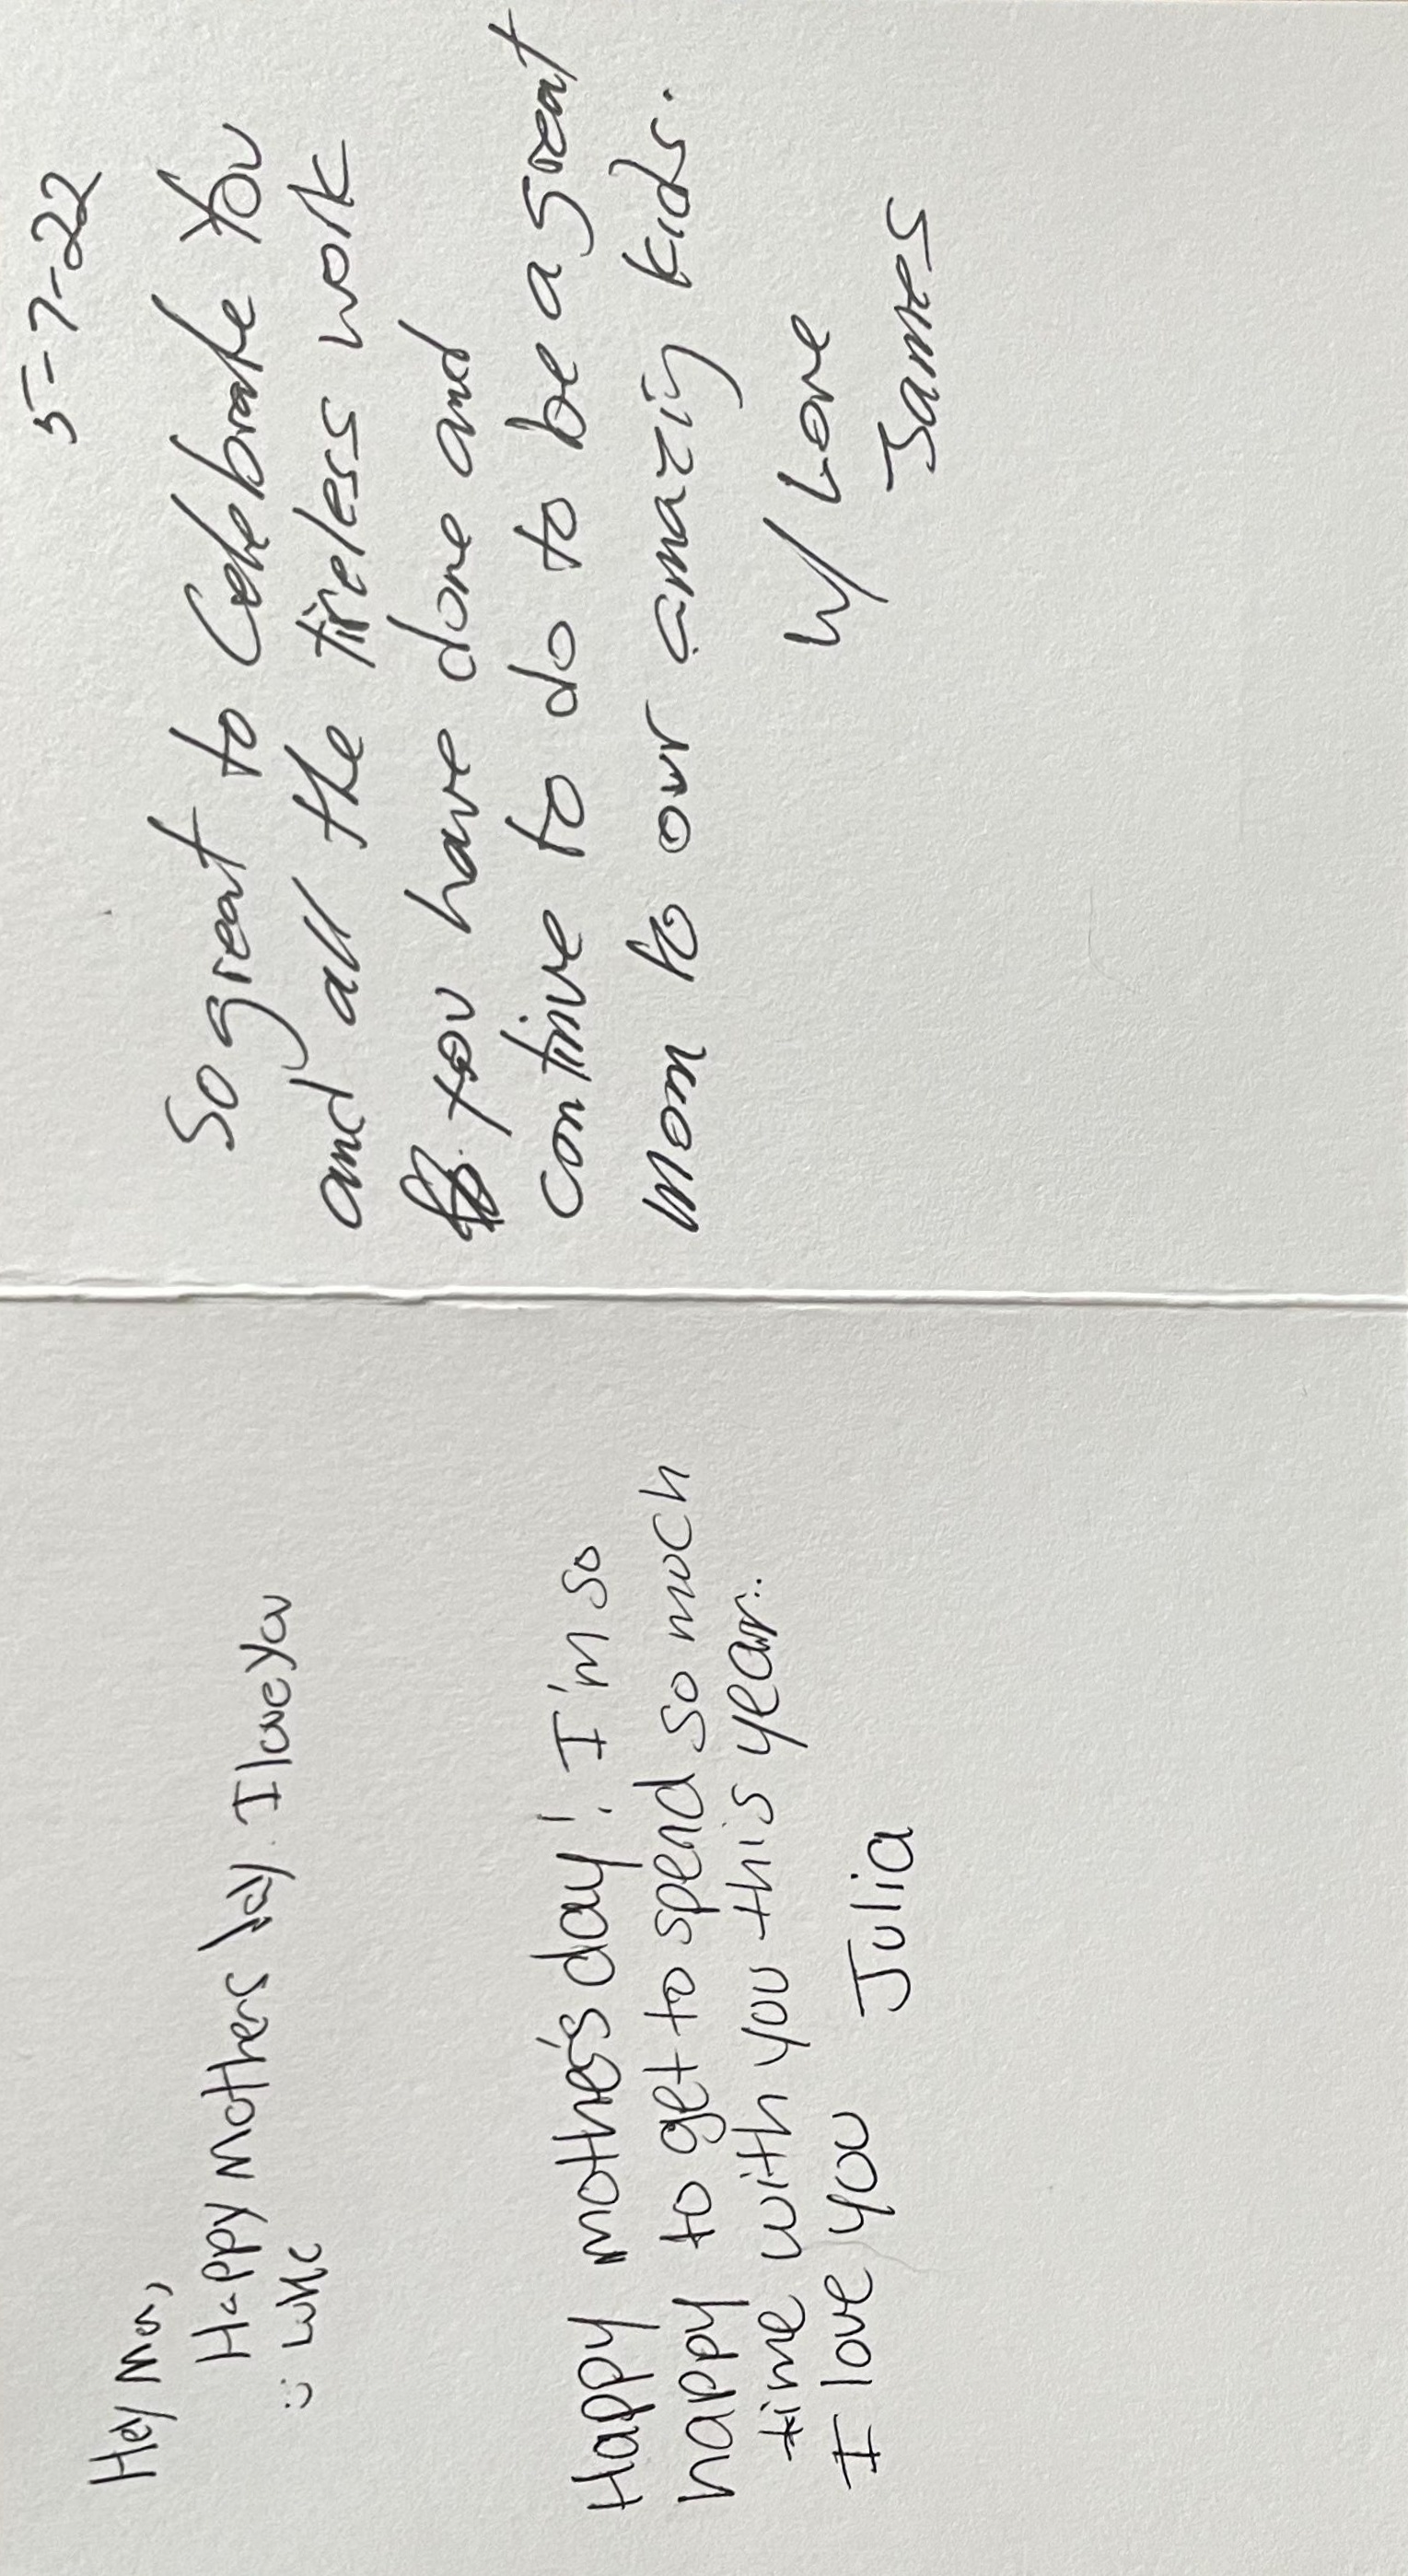 Hey Mom,
Happy mothers Day. I love you
:)
Happy mother's day! I'm so
happy to get to spend so much
time with you this year.
I love you Julia
5-7-22
So great to Celebrate You
and all the tireless work
you have done and
continue to do to be a great
mom to our amazing kids.
w/ Love
James